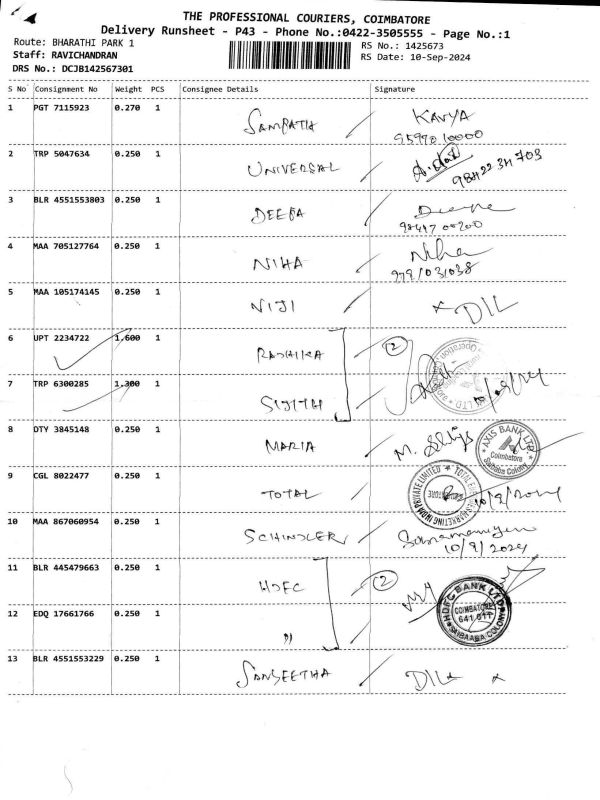 THE PROFESSIONAL COURIERS, COIMBATORE
Delivery Runsheet - P43 - Phone No.:0422-3505555 - Page No.:1
Route: BHARATHI PARK 1
RS No.: 1425673
Staff: RAVICHANDRAN
RS Date: 10-Sep-2024
DRS No.: DCJB142567301
S No Consignment No Weight PCS Consignee Details Signature
1 PGT 7115923 0.270 1 SAMPATH / KAVYA
9599010000
2 TRP 5047634 0.250 1 UNIVERSAL /
98422 34703
3 BLR 4551553803 0.250 1 DEEPA / Deepa
98417 00200
4 MAA 705127764 0.250 1 NIHA / Niha
979/031038
5 MAA 105174145 0.250 1 NIJI / x DIL
6 UPT 2234722 1.600 1 RADHIKA (2)
7 TRP 6300285 1.300 1 SIJITH
8 DTY 3845148 0.250 1 MARIA / M.
AXIS BANK LTD.
Coimbatore
Saibaba Colony
9 CGL 8022477 0.250 1 TOTAL / 10/9/2024
10 MAA 867060954 0.250 1 SCHINDLER /
10/9/2024
11 BLR 445479663 0.250 1 HDFC (2)
HDFC BANK LTD
COIMBATORE
641 011
SAIBAABA COLONY
12 EDQ 17661766 0.250 1 "
13 BLR 4551553229 0.250 1 SANGEETHA / DIL x